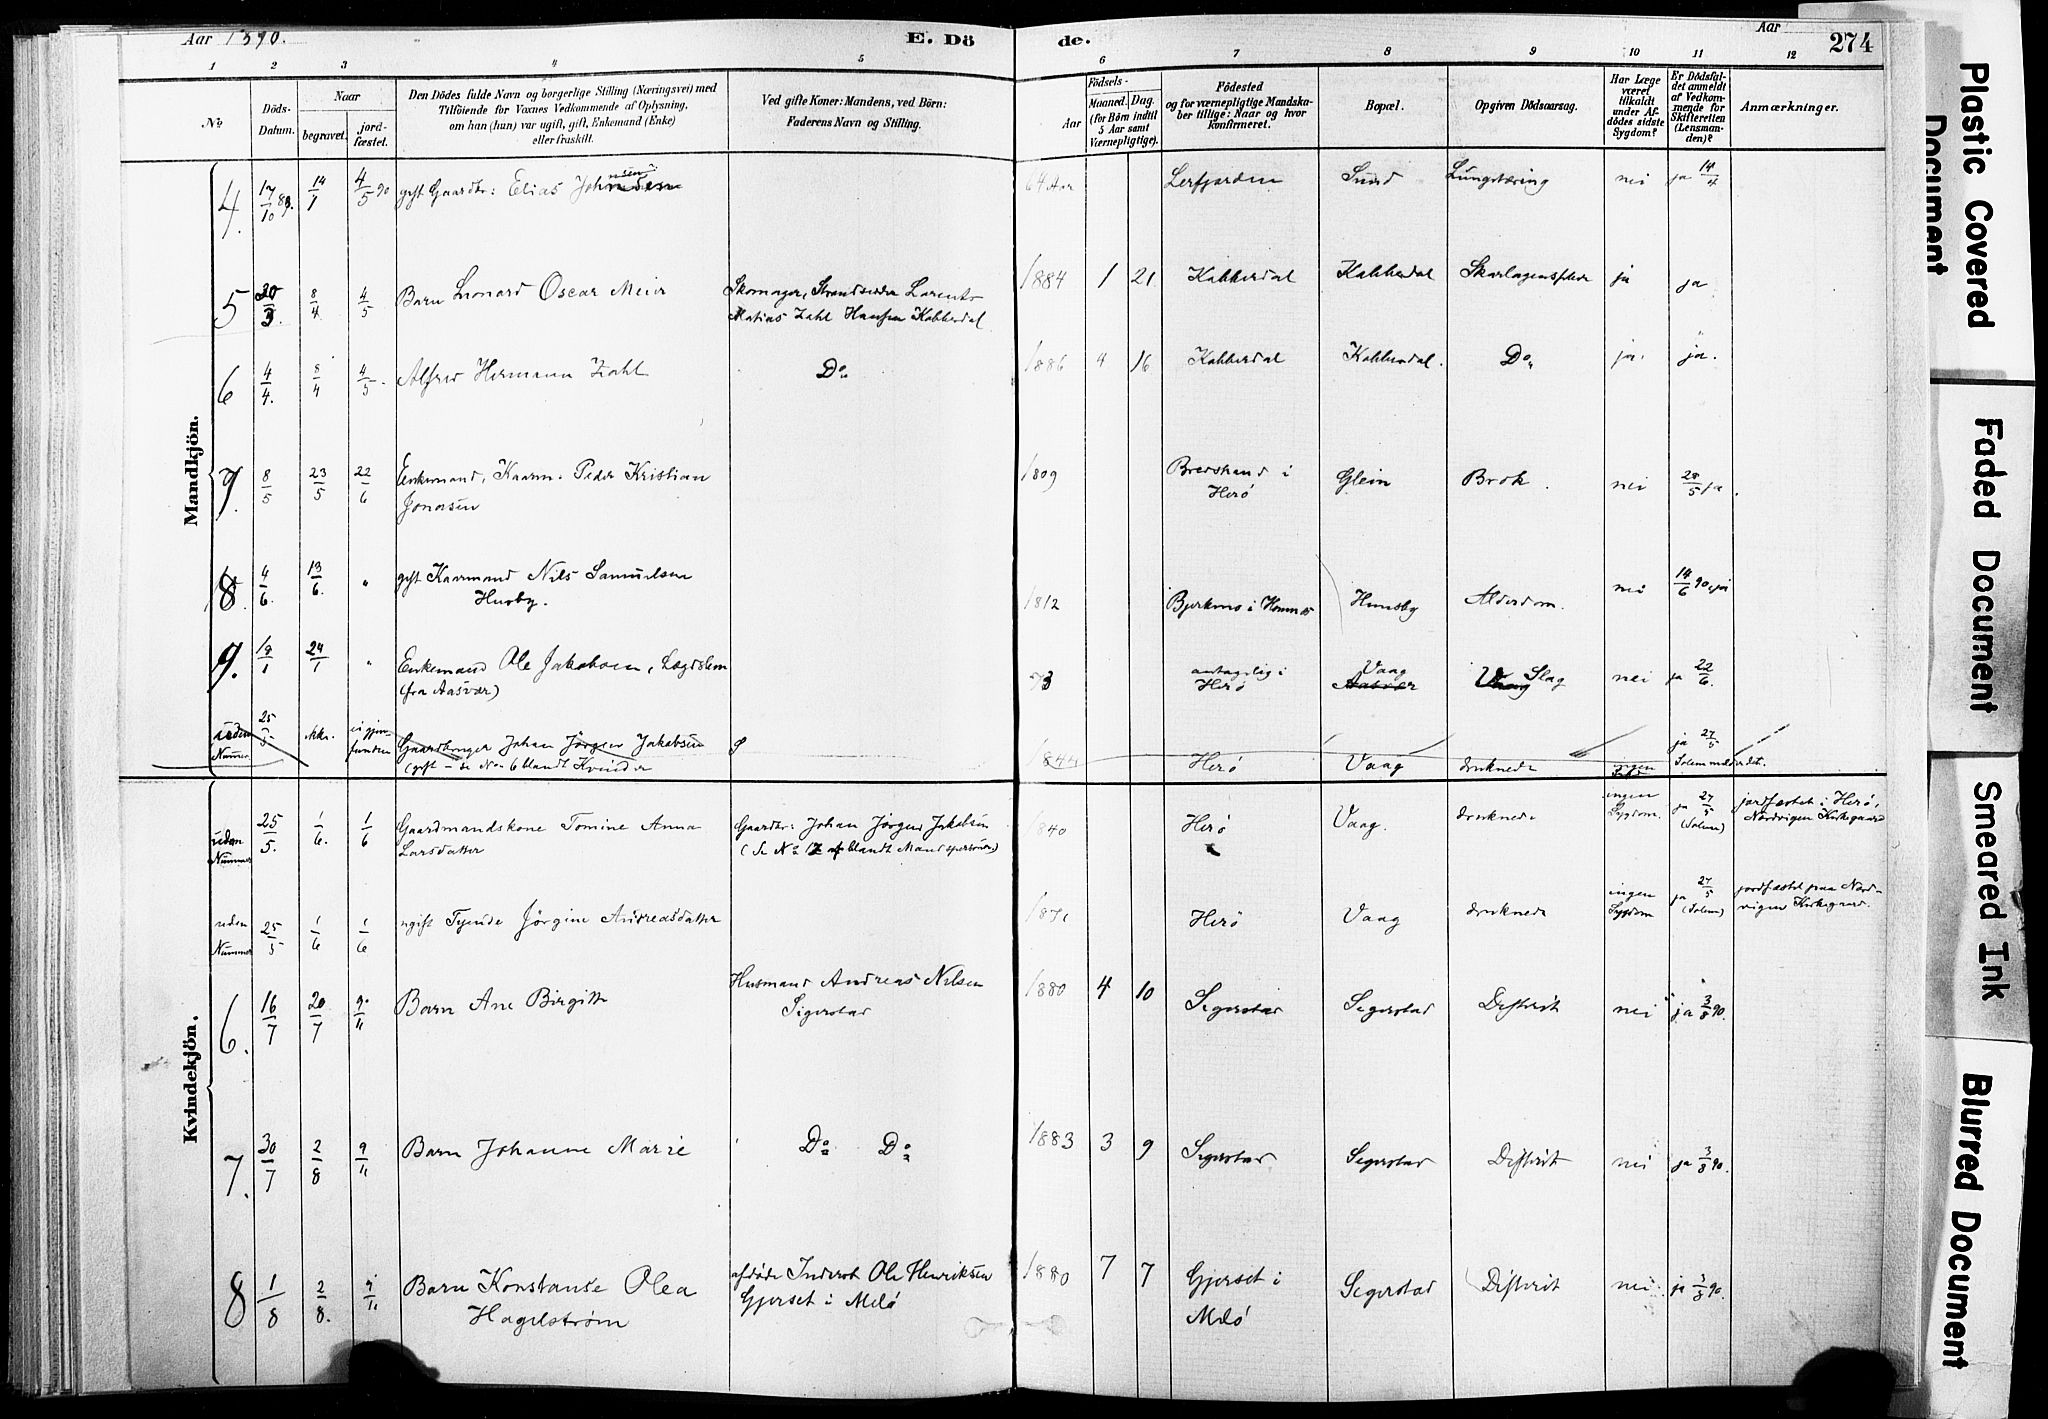 Aar 1890.
E. Dö
de.
Aar
274
1 2 3 4 5 6 7 8 9 10 11 12
No
Döds-
Datum.
Naar
begravet.
jord-
fæstet.
Den Dödes fulde Navn og borgerlige Stilling (Næringsvei) med
Tilföiende for Voxnes Vedkommende af Oplysning,
om han (hun) var ugift, gift, Enkemand (Enke)
eller fraskilt.
Ved gifte Koner: Mandens, ved Börn:
Faderens Navn og Stilling.
Födsels-
Aar
Maaned. Dag.
(for Börn indtil
5 Aar samt
Værnepligtige).
Födested
og for værnepligtige Mandska-
ber tillige: Naar og hvor
konfirmeret.
Bopæl.
Opgiven Dödsaarsag.
Har Læge
været
tilkaldt
under Af-
dödes sidste
Sygdom?
Er Dödsfal-
det anmeldt
af Vedkom-
mende for
Skifteretten
(Lensman-
den)?
Anmærkninger.
Mandkjön.
4. 17/10 89. 14/1 4/5 90 gift Gaardbr: Elias Johnsen 64 Aar Lerfjorden Sund Lungetæring nei ja 14/4
5 30/3. 8/4 4/5 Barn Leonard Oscar Meier Skomager, Strandsidder Larents
Matias Zahl Hansen Kobberdal 1884 1 21 Kobberdal Kobberdal Skarlagensfeber ja ja
6 4/4. 8/4 4/5. Alfred Hermann Zahl Do 1886 4 16 Kobberdal Kobberdal. Do ja. ja.
7. 8/5 23/5 22/6 Enkemand, Kaarm: Peder Kristian
Jonasen 1809 Bredstrand i
Herö Glein Brok. nei 28/5 ja.
8. 4/6. 13/6. " gift Kaarmand Nils Samuelsen
Husby. 1812 Bjerkmo i Hemnes Husby Alderdom. nei 14/6 90. ja
9. 24/1 " Enkemand Ole Jakobsen, Lægdslem
(fra Aasvær) 73 antagelig i
Herö Vaag
Aasvær Vaag Slag nei ja 22/6.
uden
Numer 25/5 ikke. igjen-
funden Gaardbruger Johan Jørgen Jakobsen
(gift – se No 6 blandt Kvinder 1844 Herö Vaag druknede ingen ja 27/5
Kvindekjön.
uden
Nummer 25/5. 1/6. 1/6 Gaardmandskone Tomine Anna
Larsdatter Gaardbr: Johan Jørgen Jakobsen
(Se No blandt Mandspersoner) 1840 Herö Vaag. druknede ingen
Sygdom. ja 27/5
(Solem) jordfæstet i Herö,
Nordvigen Kirkegaard
uden
Nummer 25/5 1/6 1/6 ugift Tyende Jörgine Andreasdatter 1871 Herö Vaag druknede ingen
Sygdom ja 27/5
(Solem) jordfæstet paa Nord-
vigen Kirkegaard.
6. 16/7 20/7 9/11 Barn Ane Birgitte Husmand Andreas Nilsen
Sigerstad 1880 4 10 Segerstad Segerstad Difterit nei ja 3/8 90.
7. 30/7 2/8 9/11 Barn Johanne Marie Do Do 1883 3 9 Segerstad Segerstad Difterit nei ja 3/8 90.
8 1/8 2/8. 9/11 Barn Konstanse Olea
Hagelström afdöde Inderst Ole Henriksen
Gjerset i Melö 1880 7 7 Gjerset i
Melö Segerstad Difterit nei ja 3/8 90.
Plastic Covered
Document
Faded Document
Smeared Ink
Blurred Document